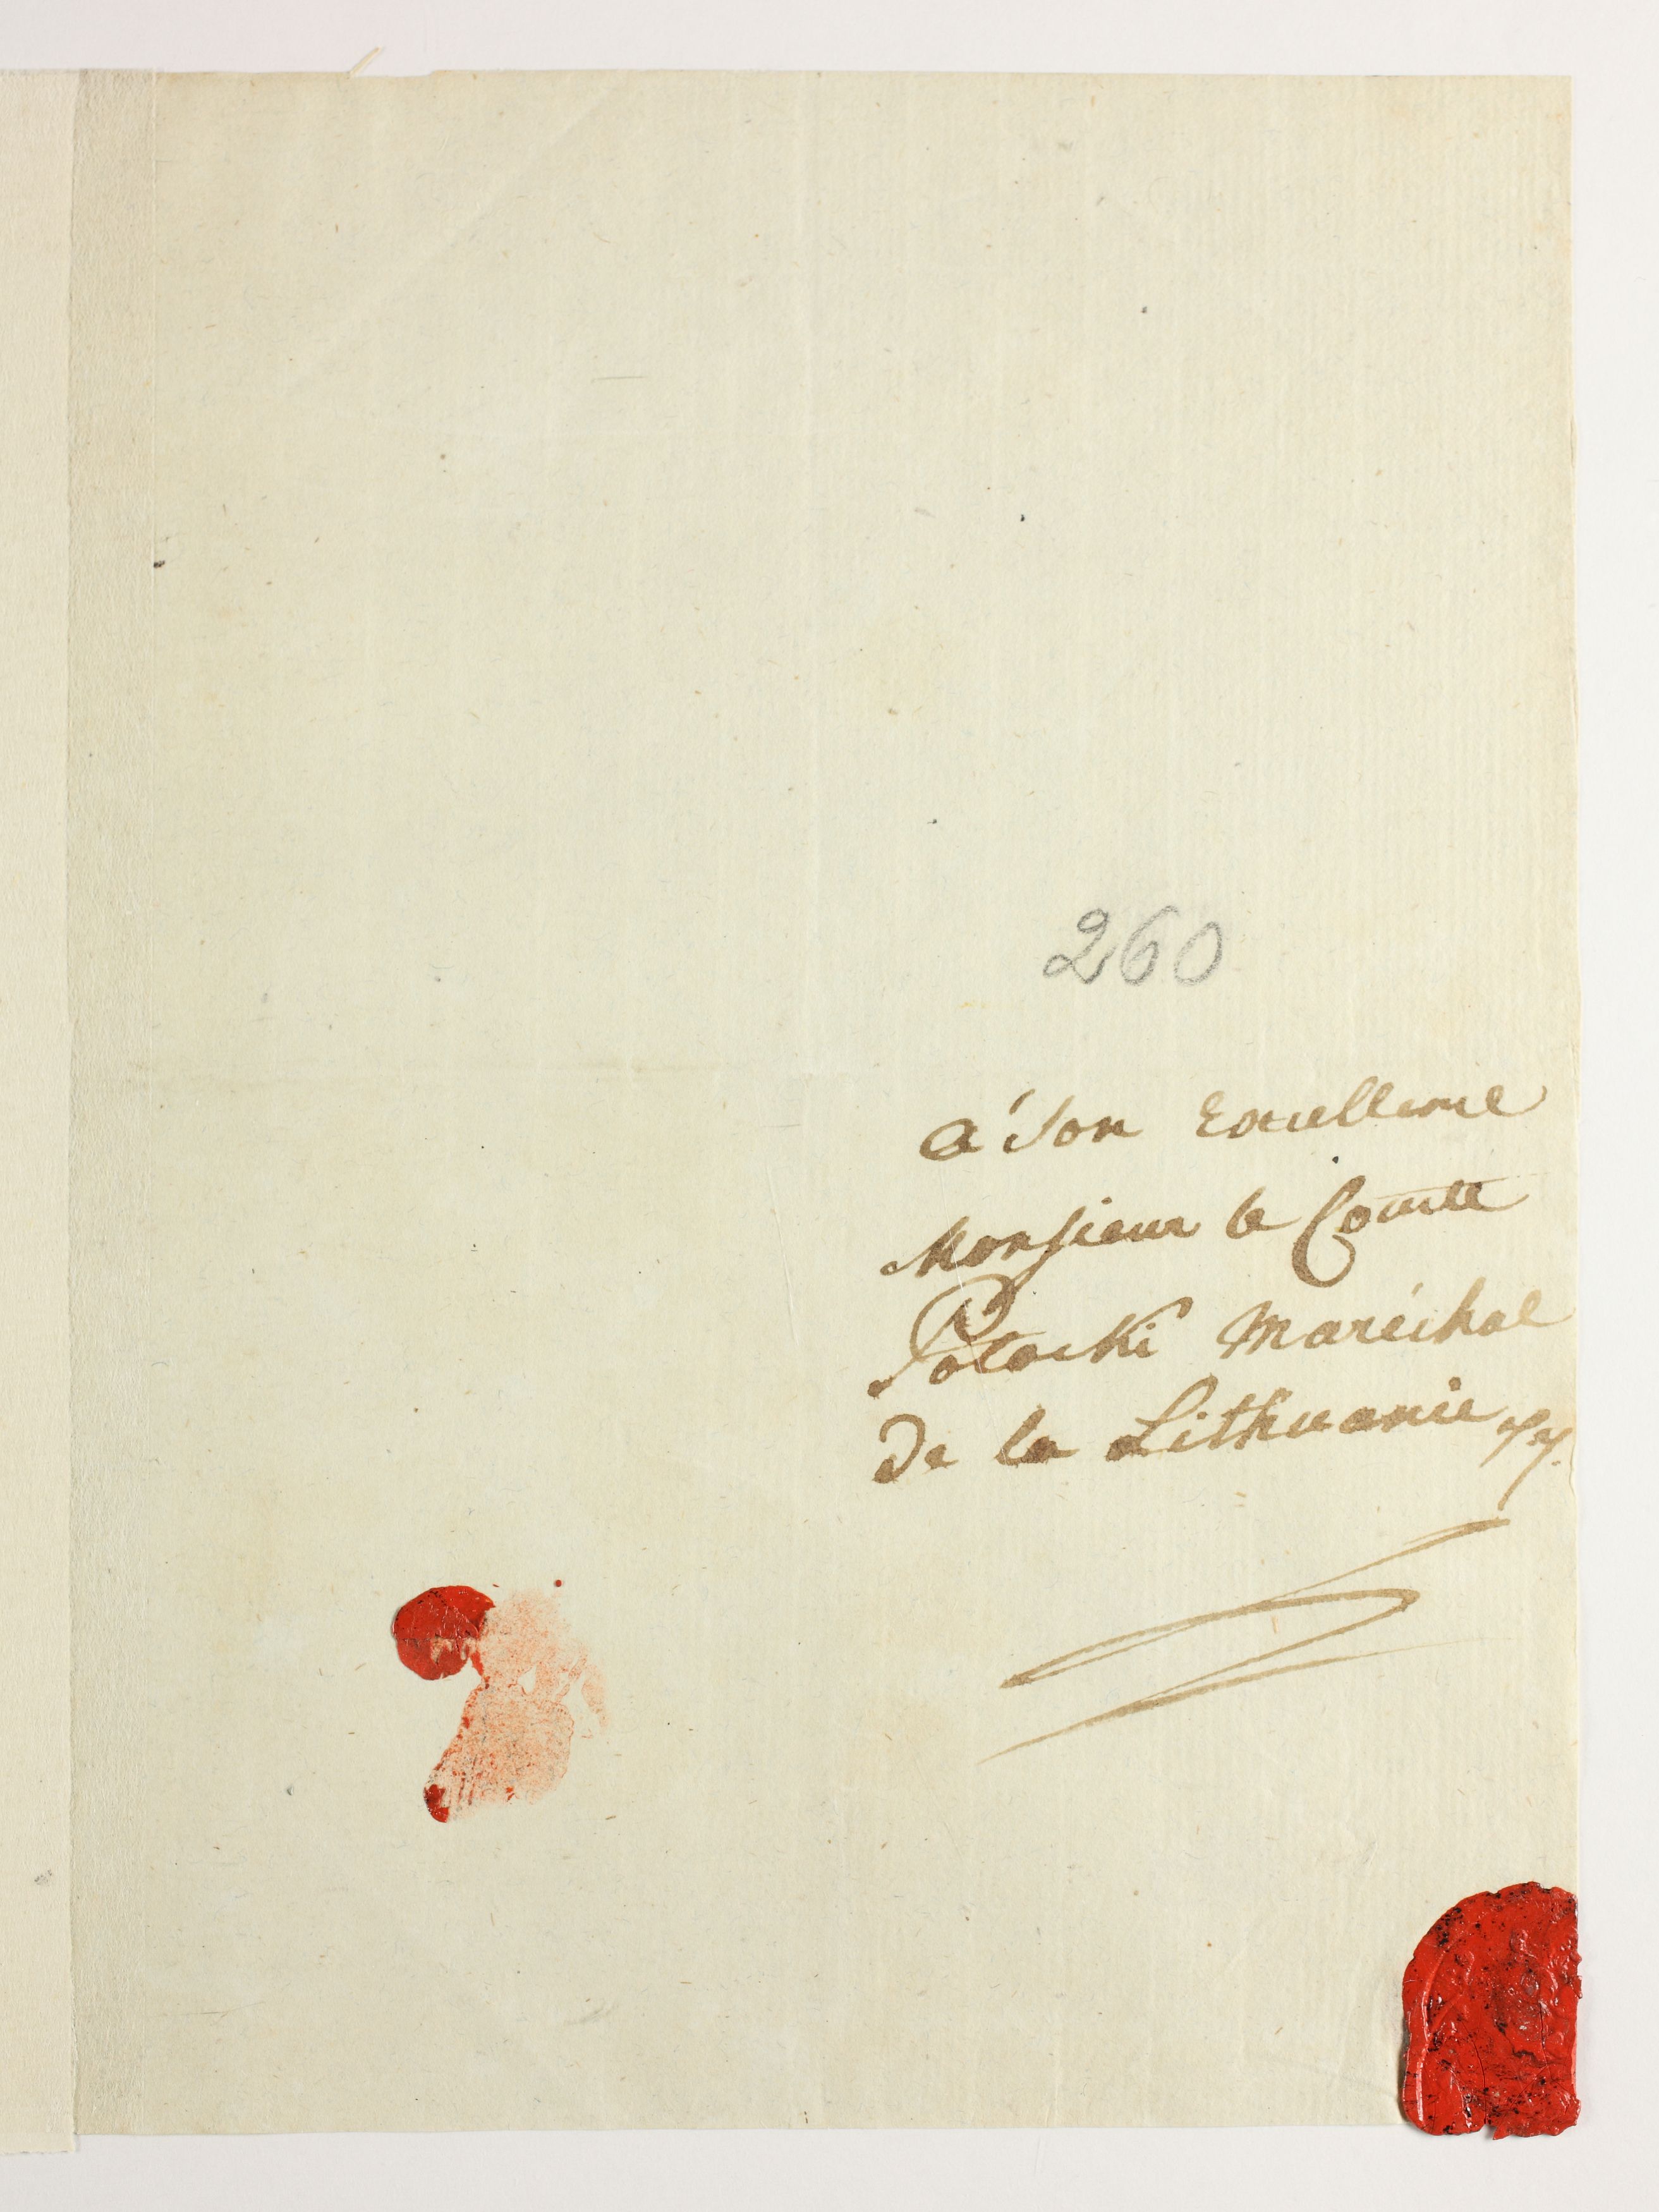 260
a' Son Excellence
Monsieur le Comte
Potocki Maréchal
de la Lithuanie